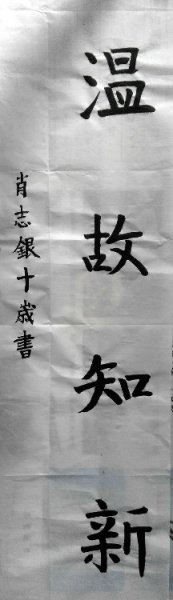 温故知新
肖志銀十歲書